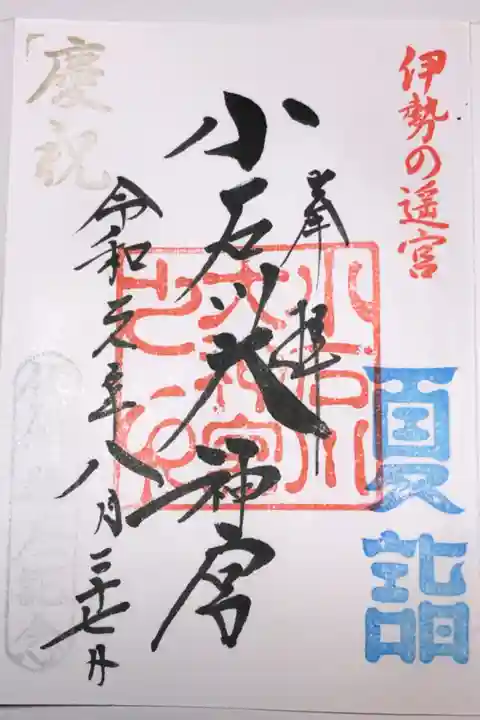 伊勢の遥宮
夏詣
奉拝
小石川大神宮
令和元年八月二十七日
慶祝
小石川
大神宮
之印